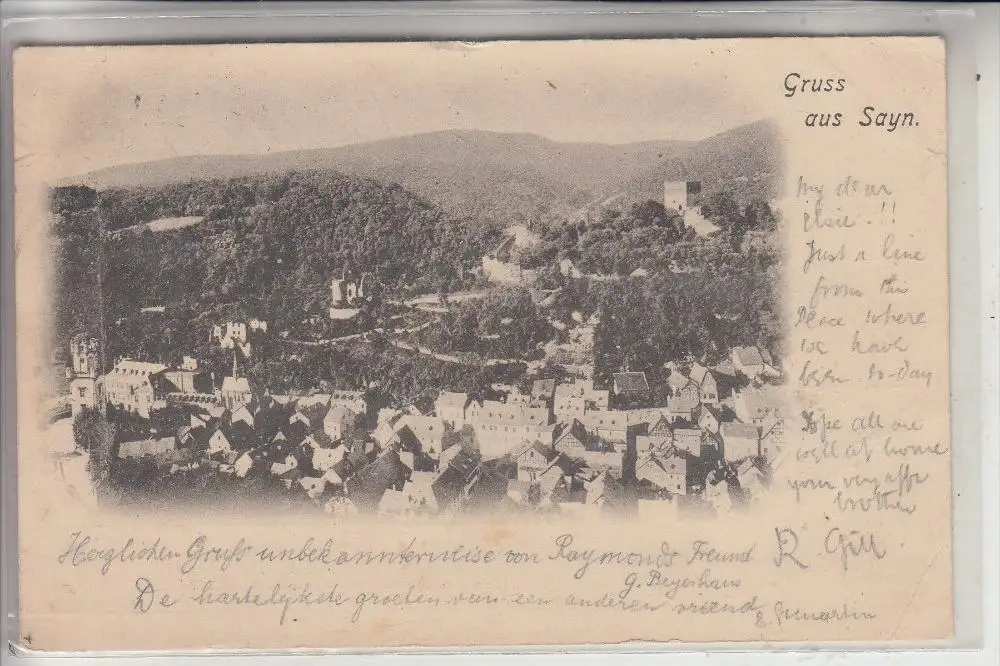 Gruss
aus Sayn.
My dear
Elsie.!!
Just a line
from this
Place where
we have
been to-day
Hope all are
well at home
your very affe
brother
R. Gill
Herzlichen Gruß unbekannterweise von Raymonds Freund
G. Beyerhaus
De hartelijkste groeten van een anderen vriend